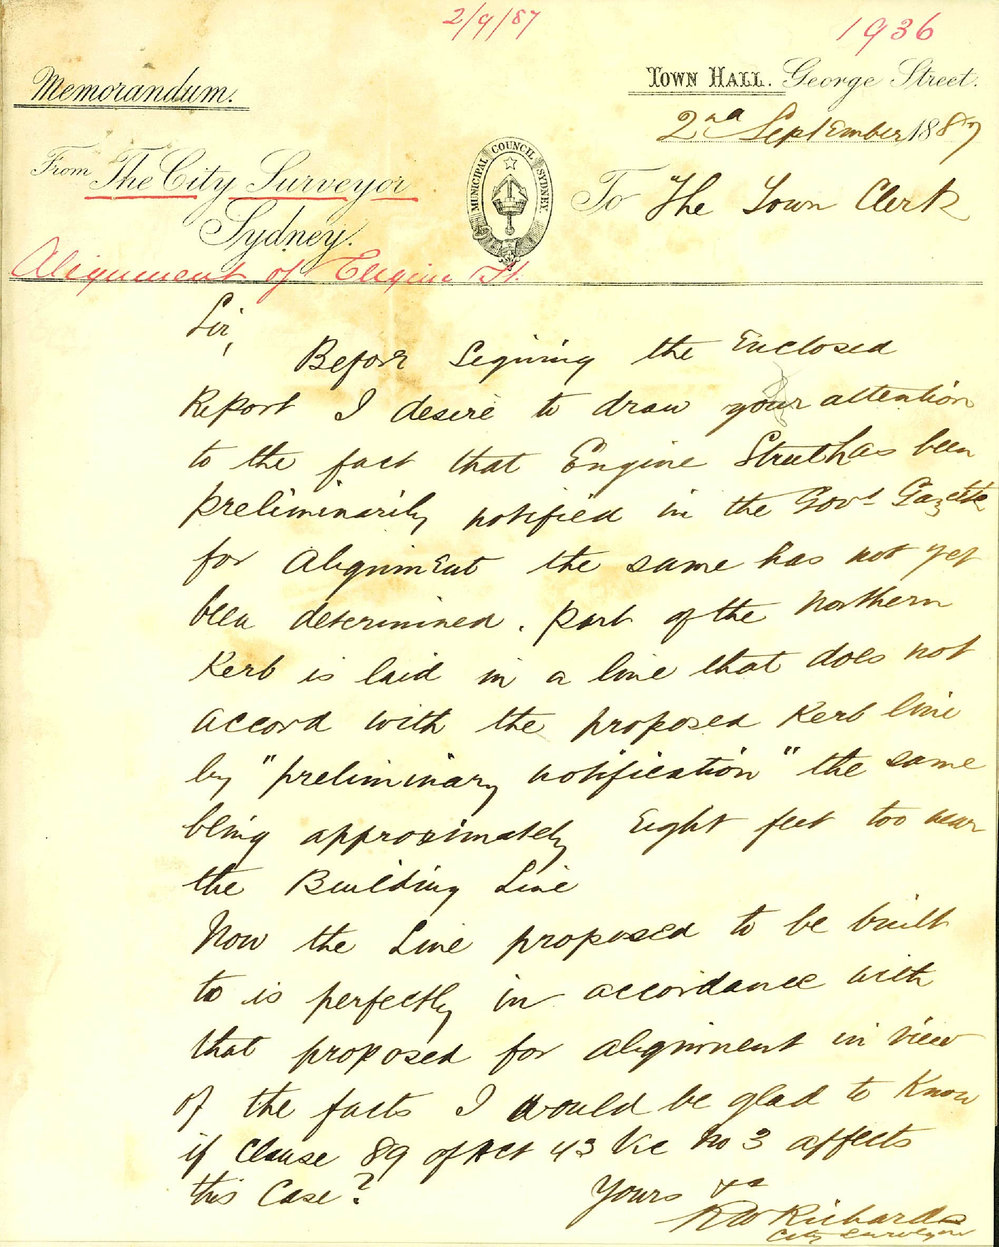 2/9/87
1936
Memorandum.
Town Hall. George Street.
2nd September 1887
From The City Surveyor
Sydney.
MUNICIPAL COUNCIL SYDNEY.
To The Town Clerk
Alignment of Engine St.
Sir,
Before signing the Enclosed
Report I desire to draw your attention
to the fact that Engine Street has been
preliminarily notified in the Govt Gazette
for alignment the same has not yet
been determined. Part of the Northern
Kerb is laid in a line that does not
accord with the proposed Kerb line
by "preliminary notification" the same
being approximately Eight feet too near
the Building Line
Now the Line proposed to be built
to is perfectly in accordance with
that proposed for alignment in view
of the facts I would be glad to know
if Clause 89 of Act 43 Vic No 3 affects
this Case?
Yours &c
RW Richards
City Surveyor